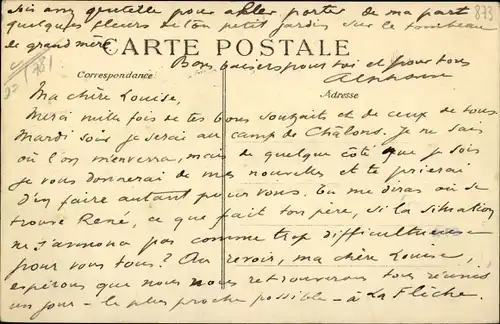 sois assez gentille pour aller porter de ma part
quelques fleurs de ton petit jardin sur le tombeau
de grand'mère
CARTE POSTALE
Bons baisers pour toi et pour tous
Alphonse
Correspondance
Adresse
Ma chère Louise,
Merci mille fois de tes bons souhaits et de ceux de tous.
Mardi soir je serai au camp de Châlons. Je ne sais
où l'on m'enverra, mais de quelque côté que je sois
je vous donnerai de mes nouvelles et te prierai
d'en faire autant pour vous. Tu me diras où se
trouve René, ce que fait ton père, si la situation
ne s'annonce pas comme trop difficultueuse
pour vous tous? Au revoir, ma chère Louise,
espérons que nous nous retrouverons tous réunis
un jour - le plus proche possible - à La Flèche.